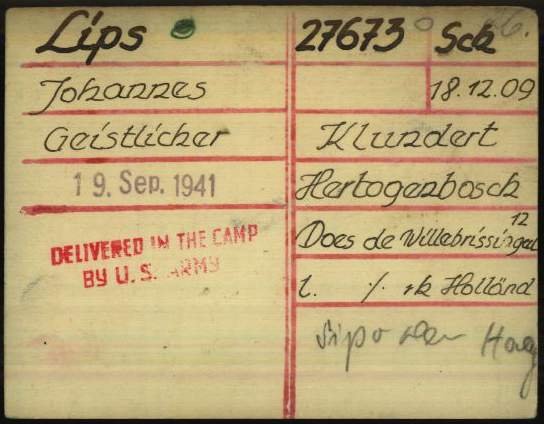 Lips 27673 Sch
Johannes 18.12.09
Geistlicher Klundert
19. Sep. 1941 Hertogenbosch
DELIVERED IN THE CAMP
BY U.S. ARMY
12
Does de Willebrissingel
l. ·/· rk Holländ
Sipo Den Haag